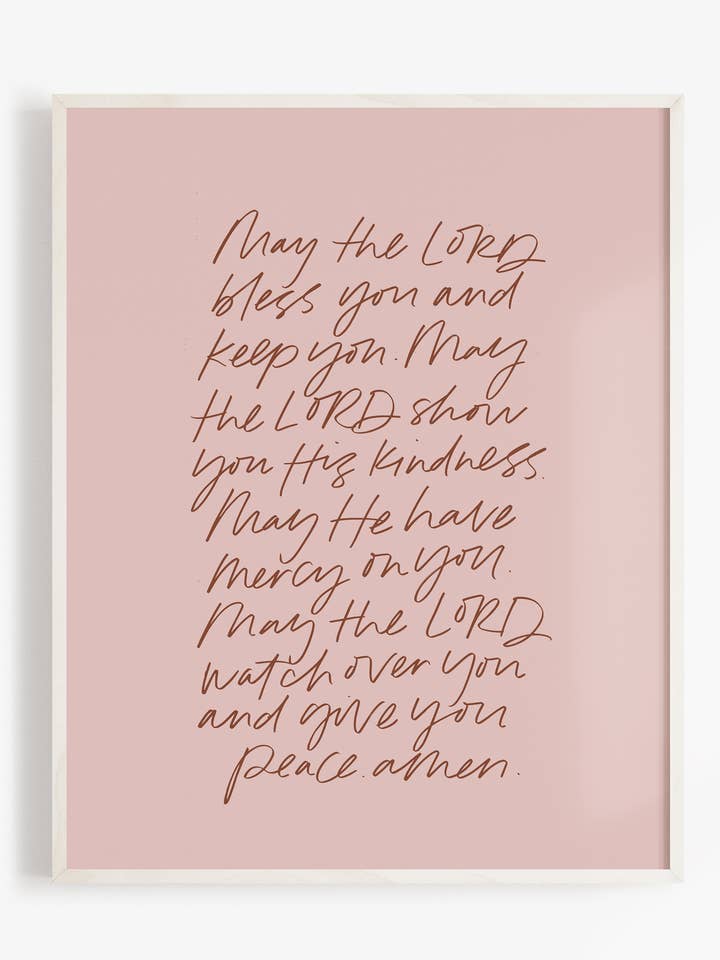 May the LORD
bless you and
keep you. May
the LORD show
you His kindness.
May He have
mercy on you.
May the LORD
watch over you
and give you
peace. amen.